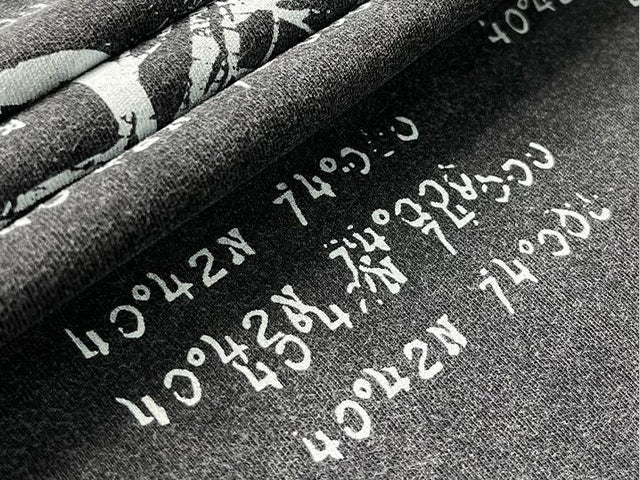 40°42
40°42N 74°00
40°42N 74°00
40°4 N 74°00
40°42N 74°00